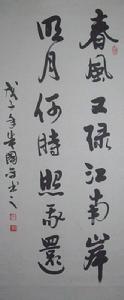 春風又綠江南岸
明月何時照我還
戊子年